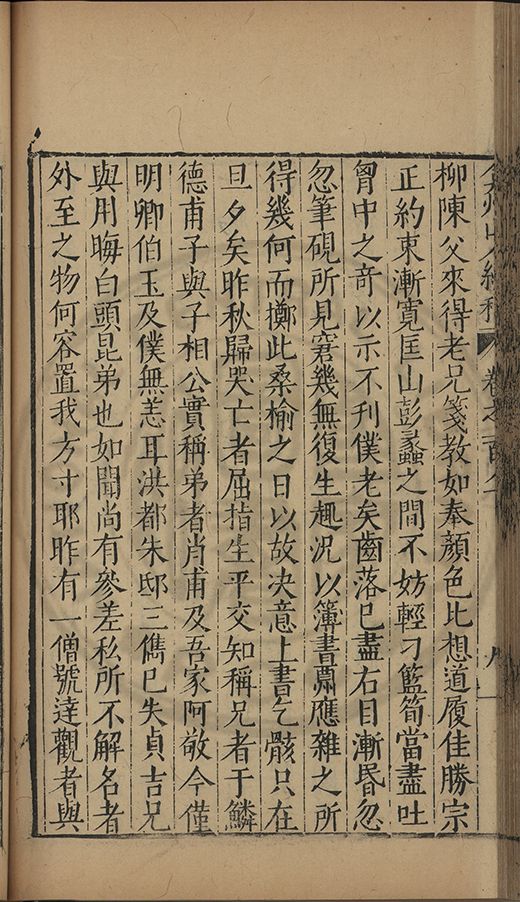 柳陳父來得老兄箋教如奉顏色比想道履佳勝宗
正約束漸寬匡山彭蠡之間不妨輕刁籃筍當盡吐
胷中之奇以示不刊僕老矣齒落巳盡右目漸昬忽
忽筆硯所見窘幾無復生趣况以簿書鬻應雜之所
得幾何而擲此桑榆之日以故决意上書乞骸只在
旦夕矣昨秋歸哭亡者屈指生平交知稱兄者于鱗
德甫子與子相公實稱弟者肖甫及吾家阿敬今僅
明卿伯玉及僕無恙耳洪都朱邸三儁巳失貞吉兄
與用晦白頭昆弟也如聞尚有參差私所不解名者
外至之物何容置我方寸耶昨有一僧號達觀者與